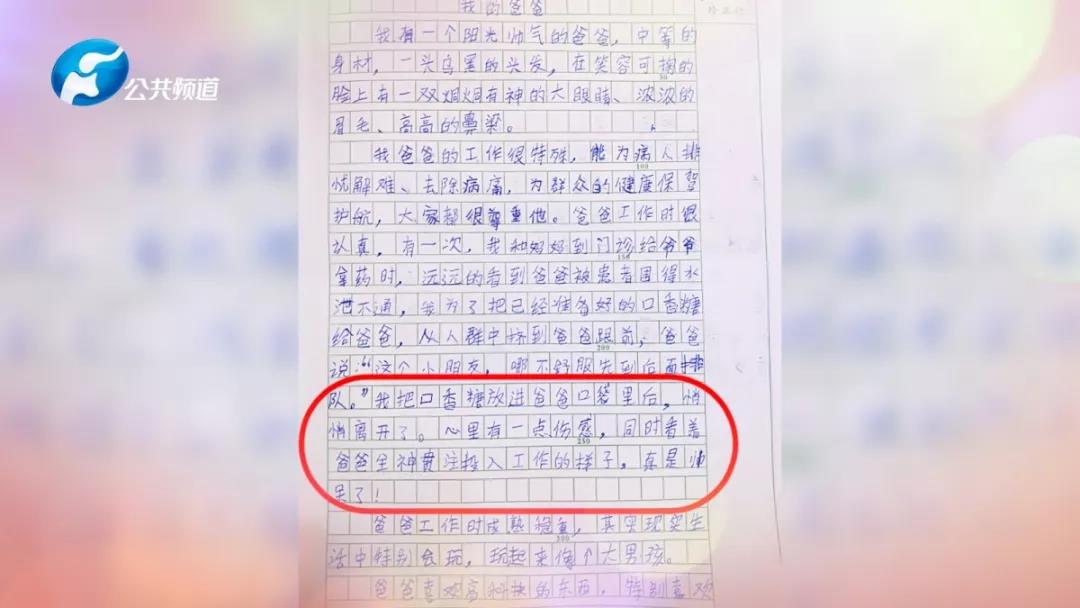 公共频道
我的爸爸
我有一个阳光帅气的爸爸，中等的
身材，一头乌黑的头发，在笑容可掬的
脸上有一双炯炯有神的大眼睛、浓浓的
眉毛、高高的鼻梁。
我爸爸的工作很特殊，能为病人排
忧解难、去除病痛，为群众的健康保驾
护航，大家都很尊重他。爸爸工作时很
认真，有一次，我和妈妈到门诊给爷爷
拿药时，远远的看到爸爸被患者围得水
泄不通，我为了把已经准备好的口香糖
给爸爸，从人群中挤到爸爸跟前，爸爸
说：“这个小朋友，哪不舒服先到后面排
队。”我把口香糖放进爸爸口袋里后，悄
悄离开了。心里有一点伤感，同时看着
爸爸全神贯注投入工作的样子，真是帅
呆了！
爸爸工作时成熟稳重，其实现实生
活中特别会玩，玩起来像个大男孩。
爸爸喜欢高科技的东西，特别喜欢